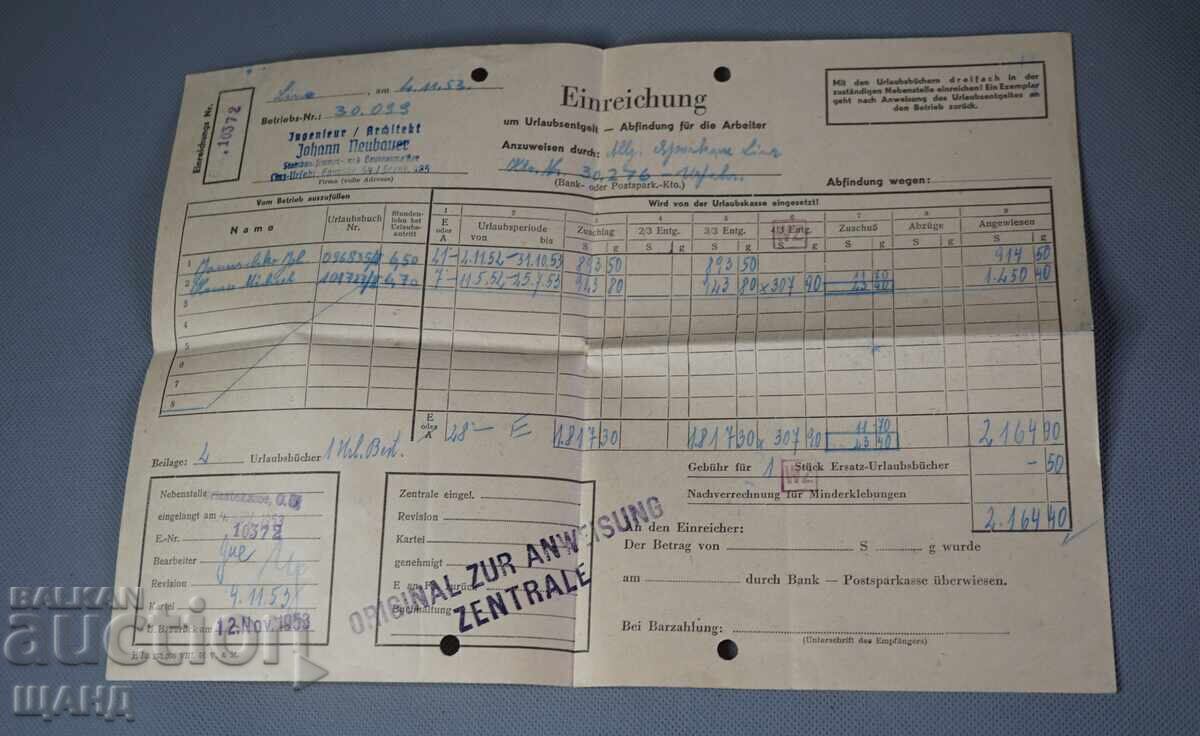 Einreichungs Nr.
10372
Linz, am 4.11.53.
Betriebs-Nr.: 30.099
Ingenieur / Architekt
Johann Neubauer
Firma (volle Adresse)
Einreichung
um Urlaubsentgelt — Abfindung für die Arbeiter
Anzuweisen durch: Allg. Sparkasse Linz
Kto. Nr. 30,276 - Urfahr.
(Bank- oder Postspark.-Kto.)
Mit den Urlaubsbüchern dreifach in der
zuständigen Nebenstelle einreichen! Ein Exemplar
geht nach Anweisung des Urlaubsentgeltes an
den Betrieb zurück.
Abfindung wegen:
Vom Betrieb auszufüllen
Wird von der Urlaubskasse eingesetzt!
Name
Urlaubsbuch Nr.
Stundenlohn bei Urlaubsantritt
1 2 3 4 5 6 7 8 9
E oder A
Urlaubsperiode von bis
Zuschlag
2/3 Entg.
3/3 Entg.
4/3 Entg.
Zuschuß
Abzüge
Angewiesen
S g S g S g S g S g S g
1 6,50 21- 2.11.52-31.10.53 893 50 893 50 914 50
2 6,70 7- 11.5.52-25.7.53 943 80 943 80 x 307 90 1.450 40
3
4
5
6
7
8
E oder A 28- E 1.817 30 1.817 30 x 307 90 11 70 2.164 90
23 40
Beilage: 2 Urlaubsbücher 1 Url. Best.
Gebühr für 1 Stück Ersatz-Urlaubsbücher - 50
WZ
Nachverrechnung für Minderklebungen
2.164 40
Nebenstelle
eingelangt am 4.
E.-Nr. 10372
Bearbeiter
Revision
Kartei 4.11.53
U. B. zurück am 12. Nov. 1953
Zentrale eingel.
Revision
Kartei
genehmigt
E an Be. zurück
Buchhaltung
ORIGINAL ZUR ANWEISUNG
ZENTRALE
An den Einreicher:
Der Betrag von S g wurde
am durch Bank — Postsparkasse überwiesen.
Bei Barzahlung:
(Unterschrift des Empfängers)
BALKAN
auction
ШАНД